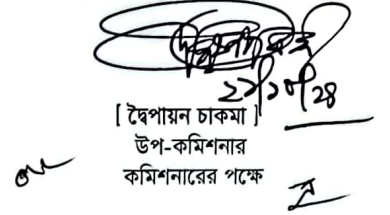 ২১/১০/২৪
[ দ্বৈপায়ন চাকমা ]
উপ-কমিশনার
কমিশনারের পক্ষে